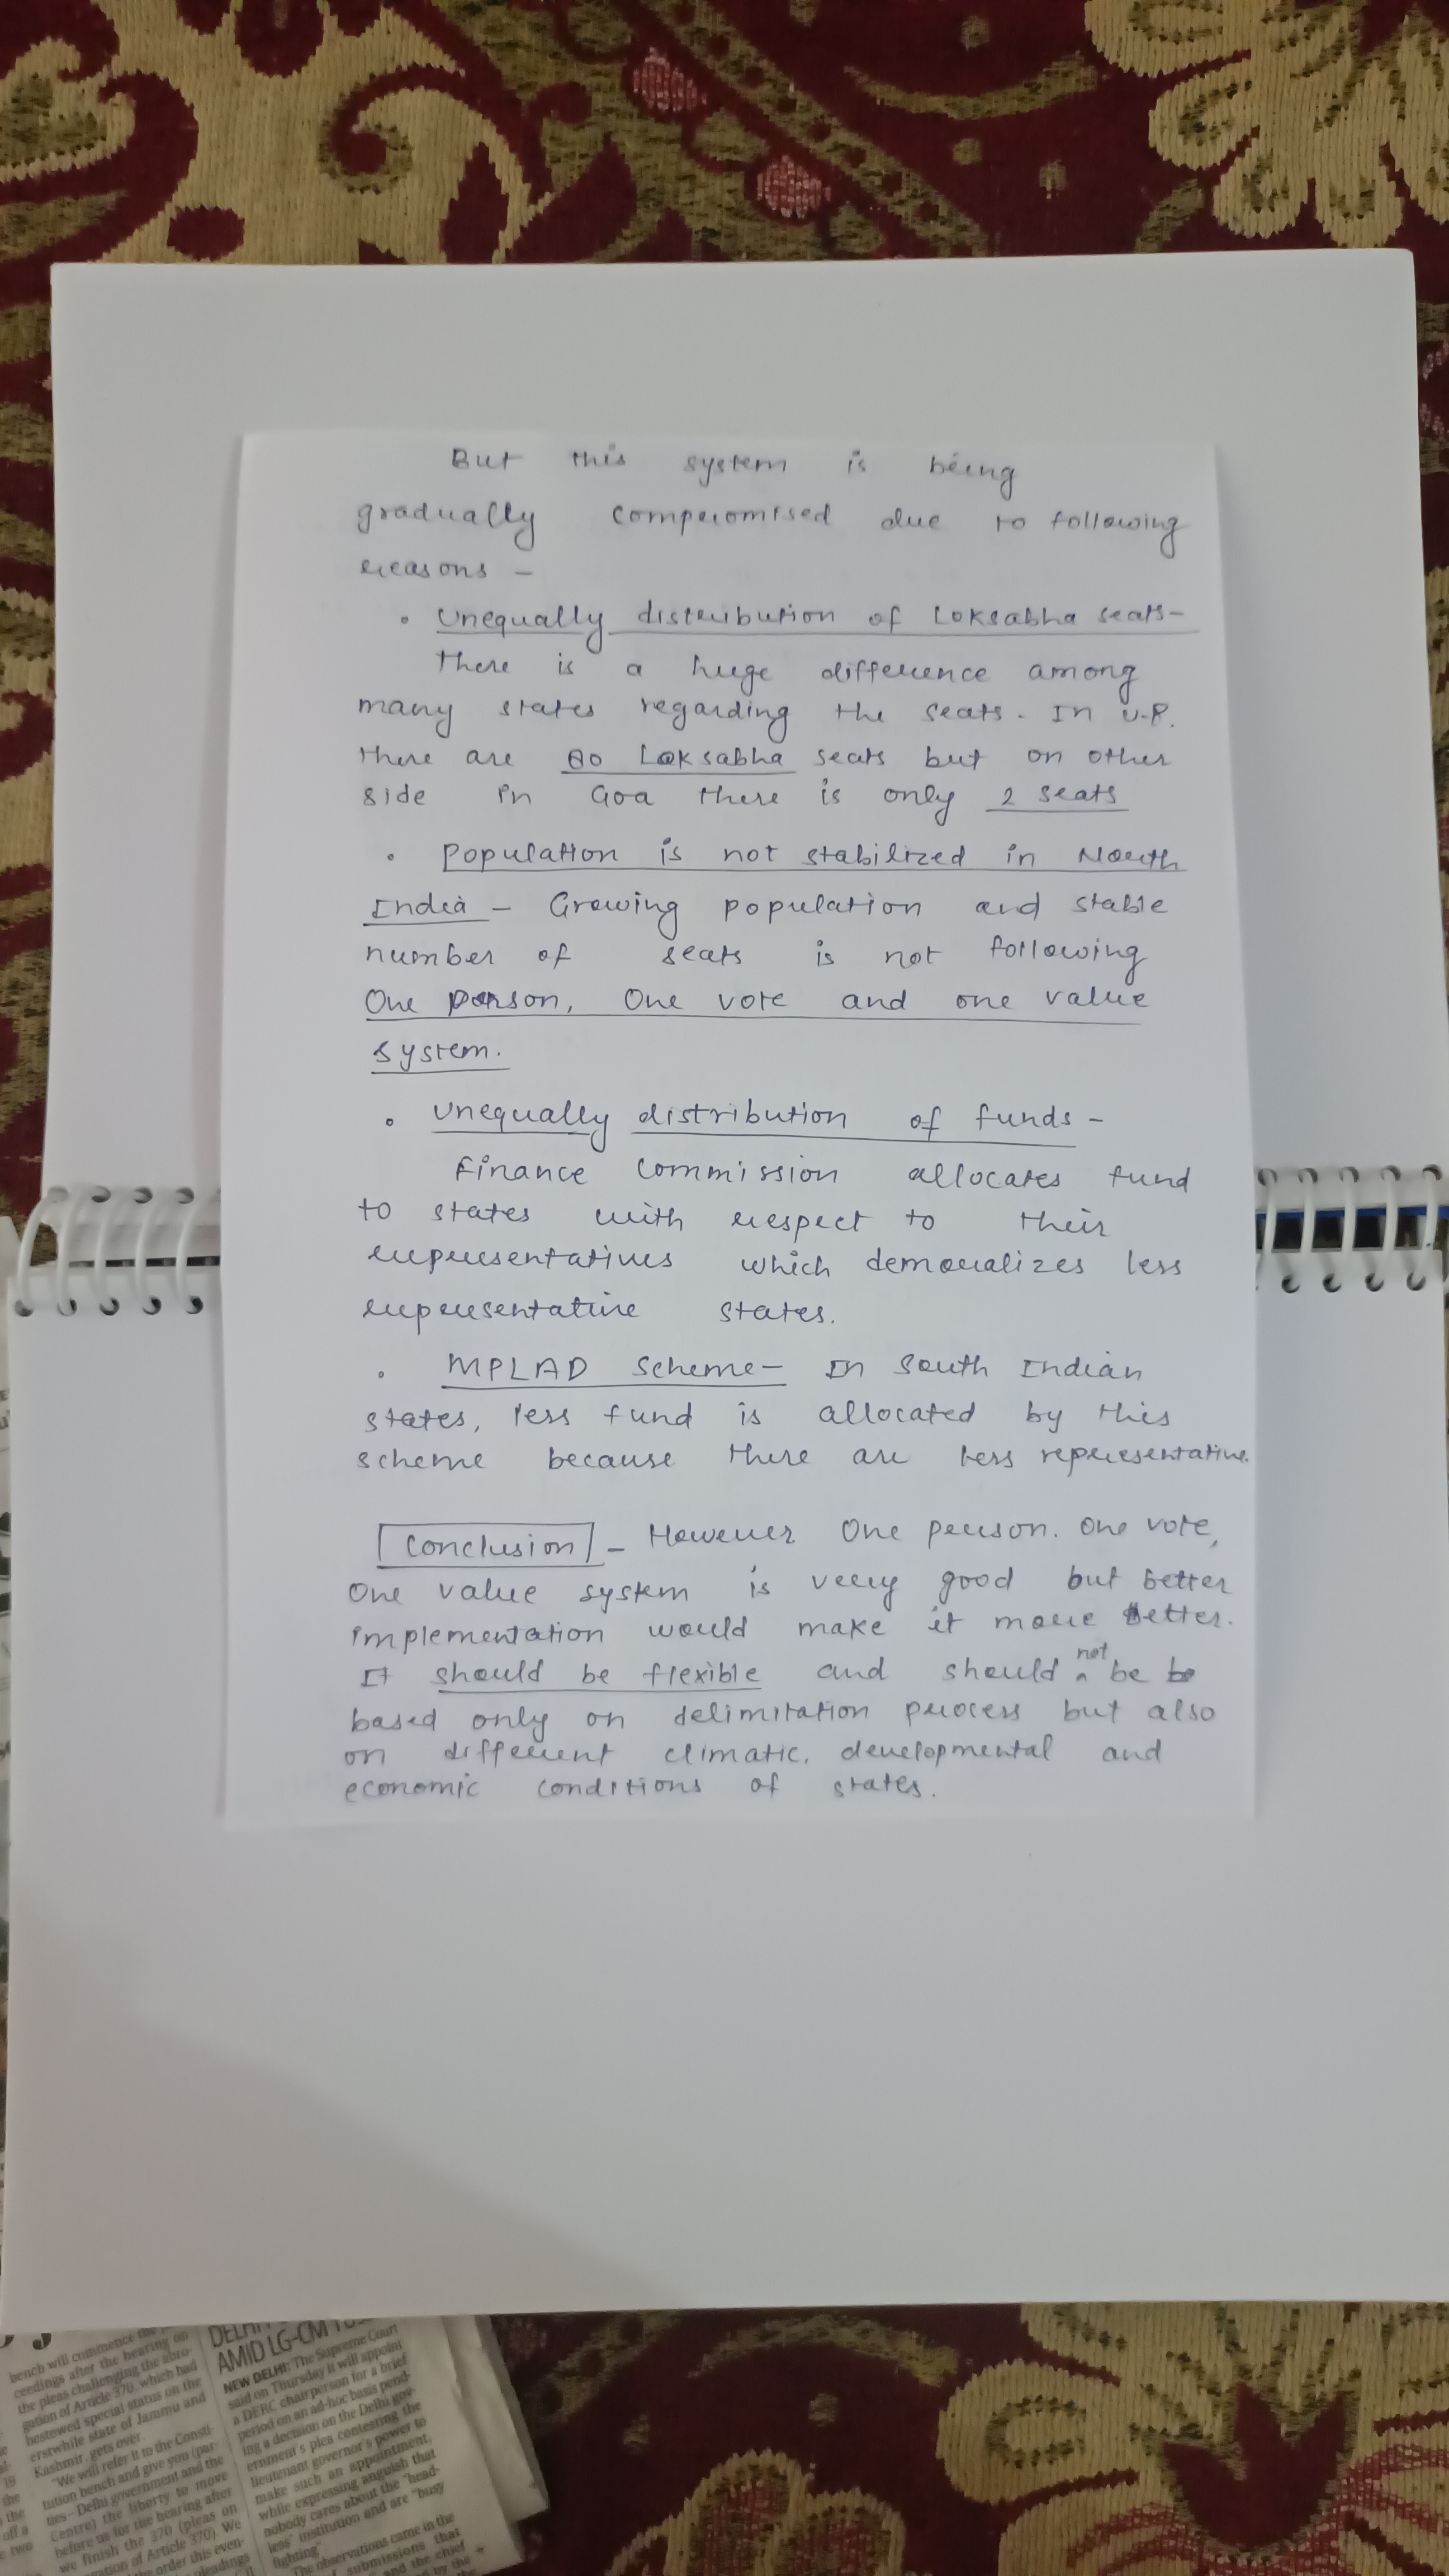 But this system is being
gradually compromised due to following
reasons -
• Unequally distribution of Loksabha seats-
There is a huge difference among
many states regarding the seats. In U.P.
there are 80 Loksabha seats but on other
side in Goa there is only 2 seats
• Population is not stabilized in North
India - Growing population and stable
number of seats is not following
One person, One vote and one value
system.
• Unequally distribution of funds -
Finance Commission allocates fund
to states with respect to their
representatives which demoralizes less
representative states.
• MPLAD Scheme- In South Indian
states, less fund is allocated by this
scheme because there are less representative.
Conclusion - However One person. One vote,
One value system is very good but better
implementation would make it more better.
It should be flexible and should not be
based only on delimitation process but also
on different climatic, developmental and
economic conditions of states.
bench will commence
ceedings after the hearing on
the pleas challenging the abro-
gation of Article 370, which had
bestowed special status on the
erstwhile state of Jammu and
Kashmir, gets over.
"We will refer it to the Consti-
tution bench and give you (par-
ties - Delhi government and the
Centre) the liberty to move
before us for the hearing after
we finish the 370 (pleas on
Article 370). We
order this even-
AMID LG-CM
NEW DELHI: The Supreme Court
said on Thursday it will appoint
a DERC chairperson for a brief
period on an ad-hoc basis pend-
ing a decision on the Delhi gov-
ernment's plea contesting the
lieutenant governor's power to
make such an appointment,
while expressing anguish that
nobody cares about the "head-
less" institution and are "busy
fighting".
The observations came in the
submissions that
and the chief